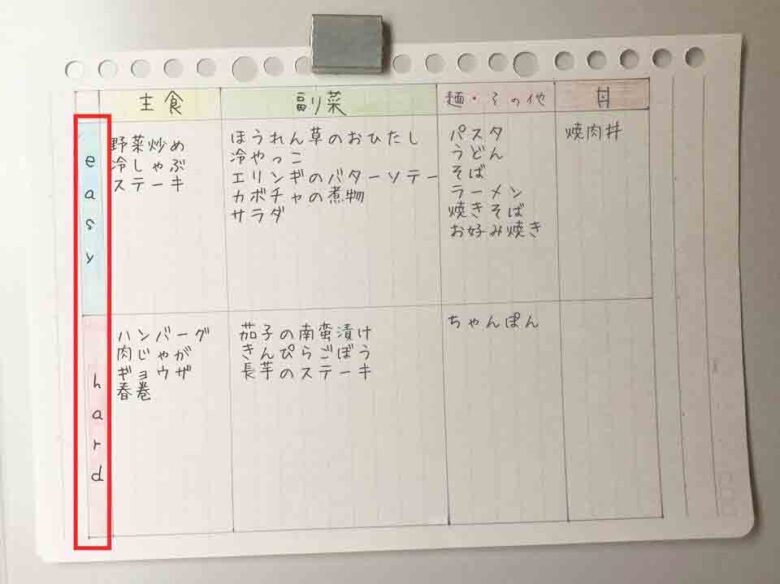 主食
副菜
麺・その他
丼
easy
野菜炒め
冷しゃぶ
ステーキ
ほうれん草のおひたし
冷やっこ
エリンギのバターソテー
カボチャの煮物
サラダ
パスタ
うどん
そば
ラーメン
焼きそば
お好み焼き
焼肉丼
hard
ハンバーグ
肉じゃが
ギョウザ
春巻
茄子の南蛮漬け
きんぴらごぼう
長芋のステーキ
ちゃんぽん